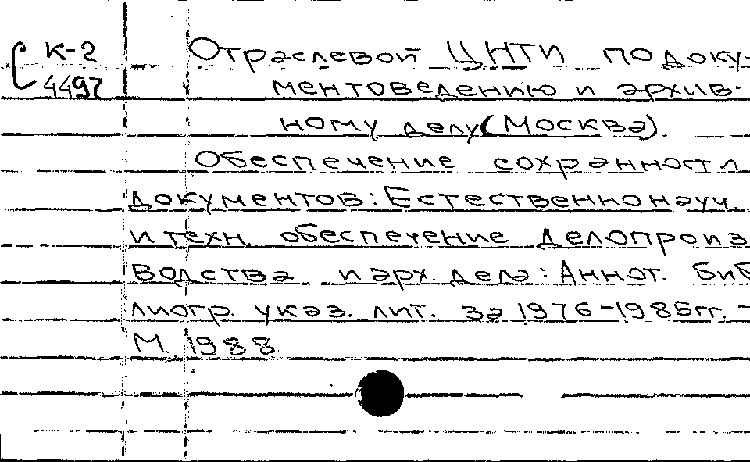 К-2 Отраслевой ЦНТИ по доку-
4497 ментоведению и архив-
ному делу (Москва).
Обеспечение сохранности
документов: Естественнонауч.
и техн. обеспечение делопроиз
водства и арх. дела: Аннот. биб
лиогр. указ. лит. за 1976-1986гг. -
М. 1988